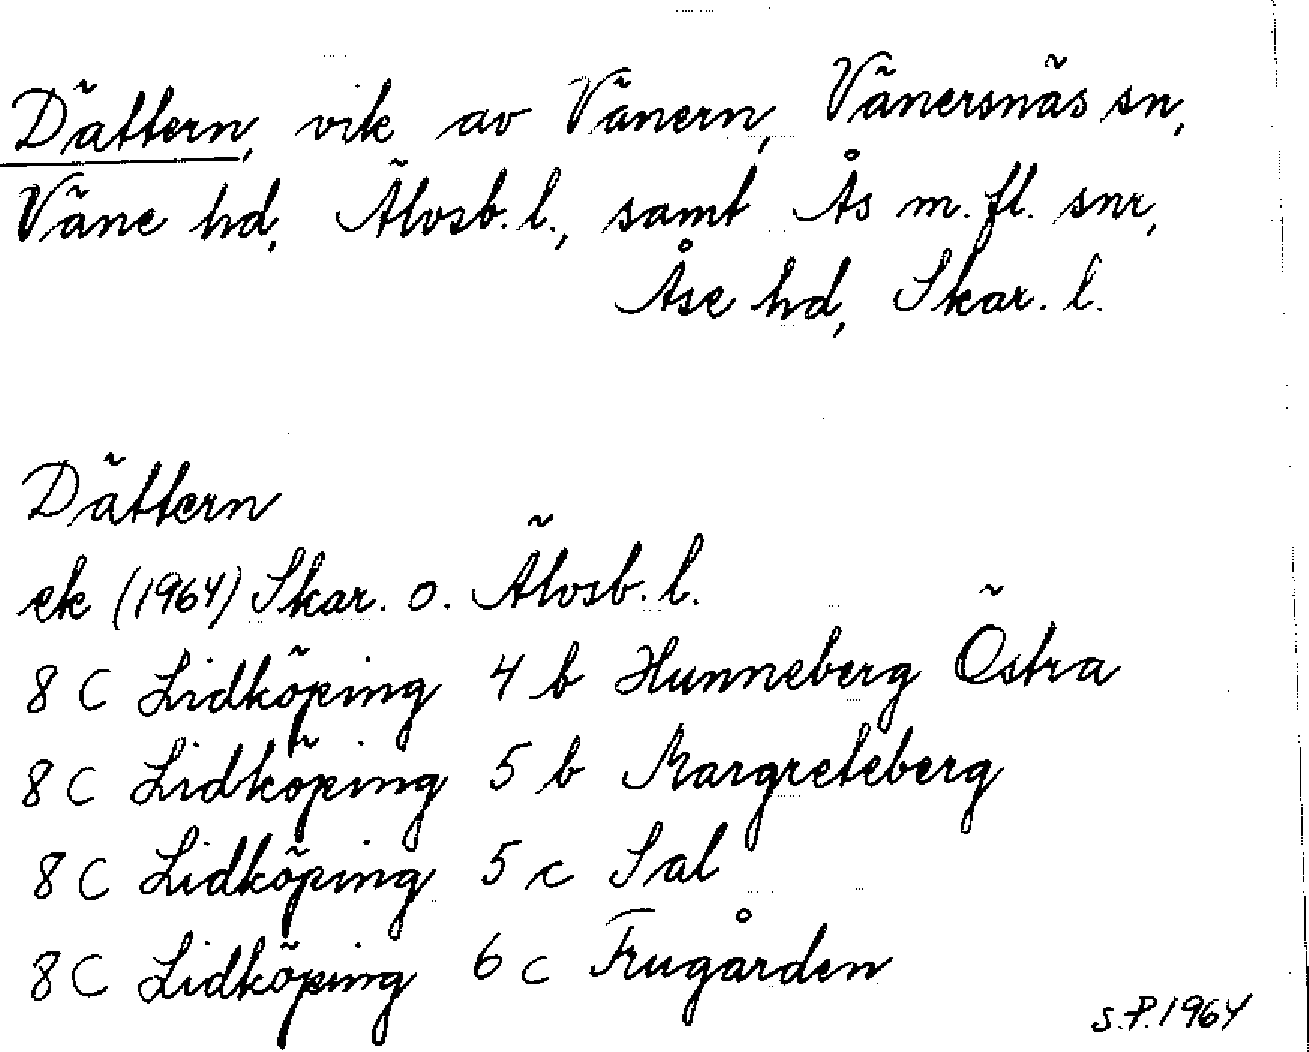 Dättern, vik av Vänern, Vänersnäs sn,
Väne hd, Älvsb. l., samt Ås m. fl. snr,
Åse hd, Skar. l.
Dättern
ek (1964) Skar. o. Älvsb. l.
8 C Lidköping 4 b Hunneberg Östra
8 C Lidköping 5 b Margreteberg
8 C Lidköping 5 c Sal
8 C Lidköping 6 c Frugården
S.P. 1964